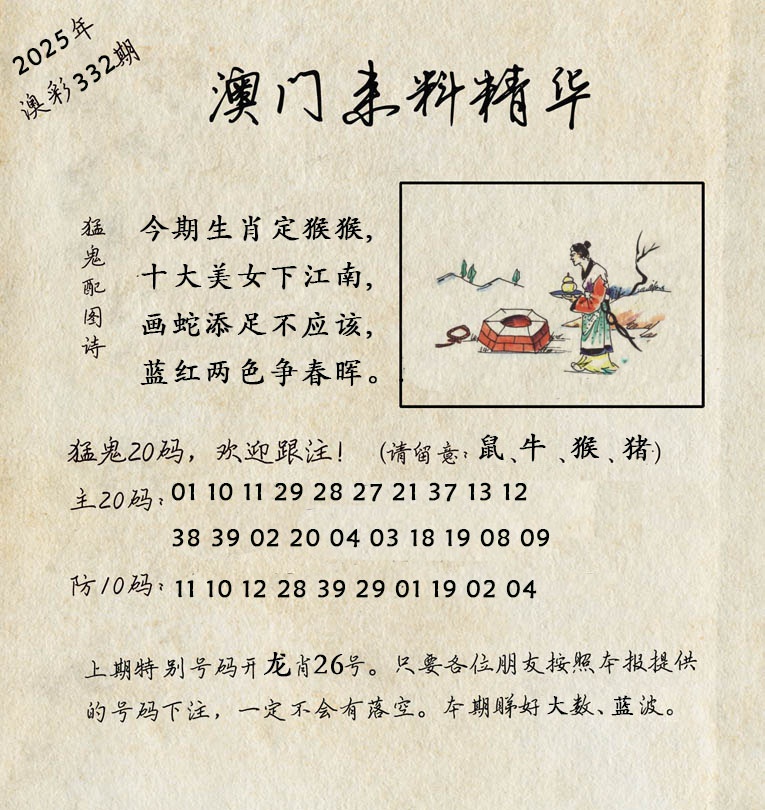 2025年
澳彩332期
澳门来料精华
猛鬼配图诗
今期生肖定猴猴，
十大美女下江南，
画蛇添足不应该，
蓝红两色争春晖。
猛鬼20码，欢迎跟注！（请留意：鼠、牛、猴、猪）
主20码：01 10 11 29 28 27 21 37 13 12
38 39 02 20 04 03 18 19 08 09
防10码：11 10 12 28 39 29 01 19 02 04
上期特别号码开龙肖26号。只要各位朋友按照本报提供
的号码下注，一定不会有落空。本期睇好大数、蓝波。